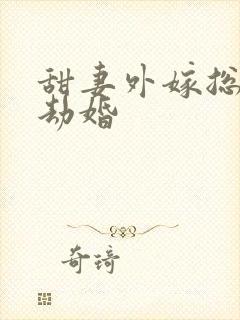 甜妻外嫁总
劫婚
奇琦